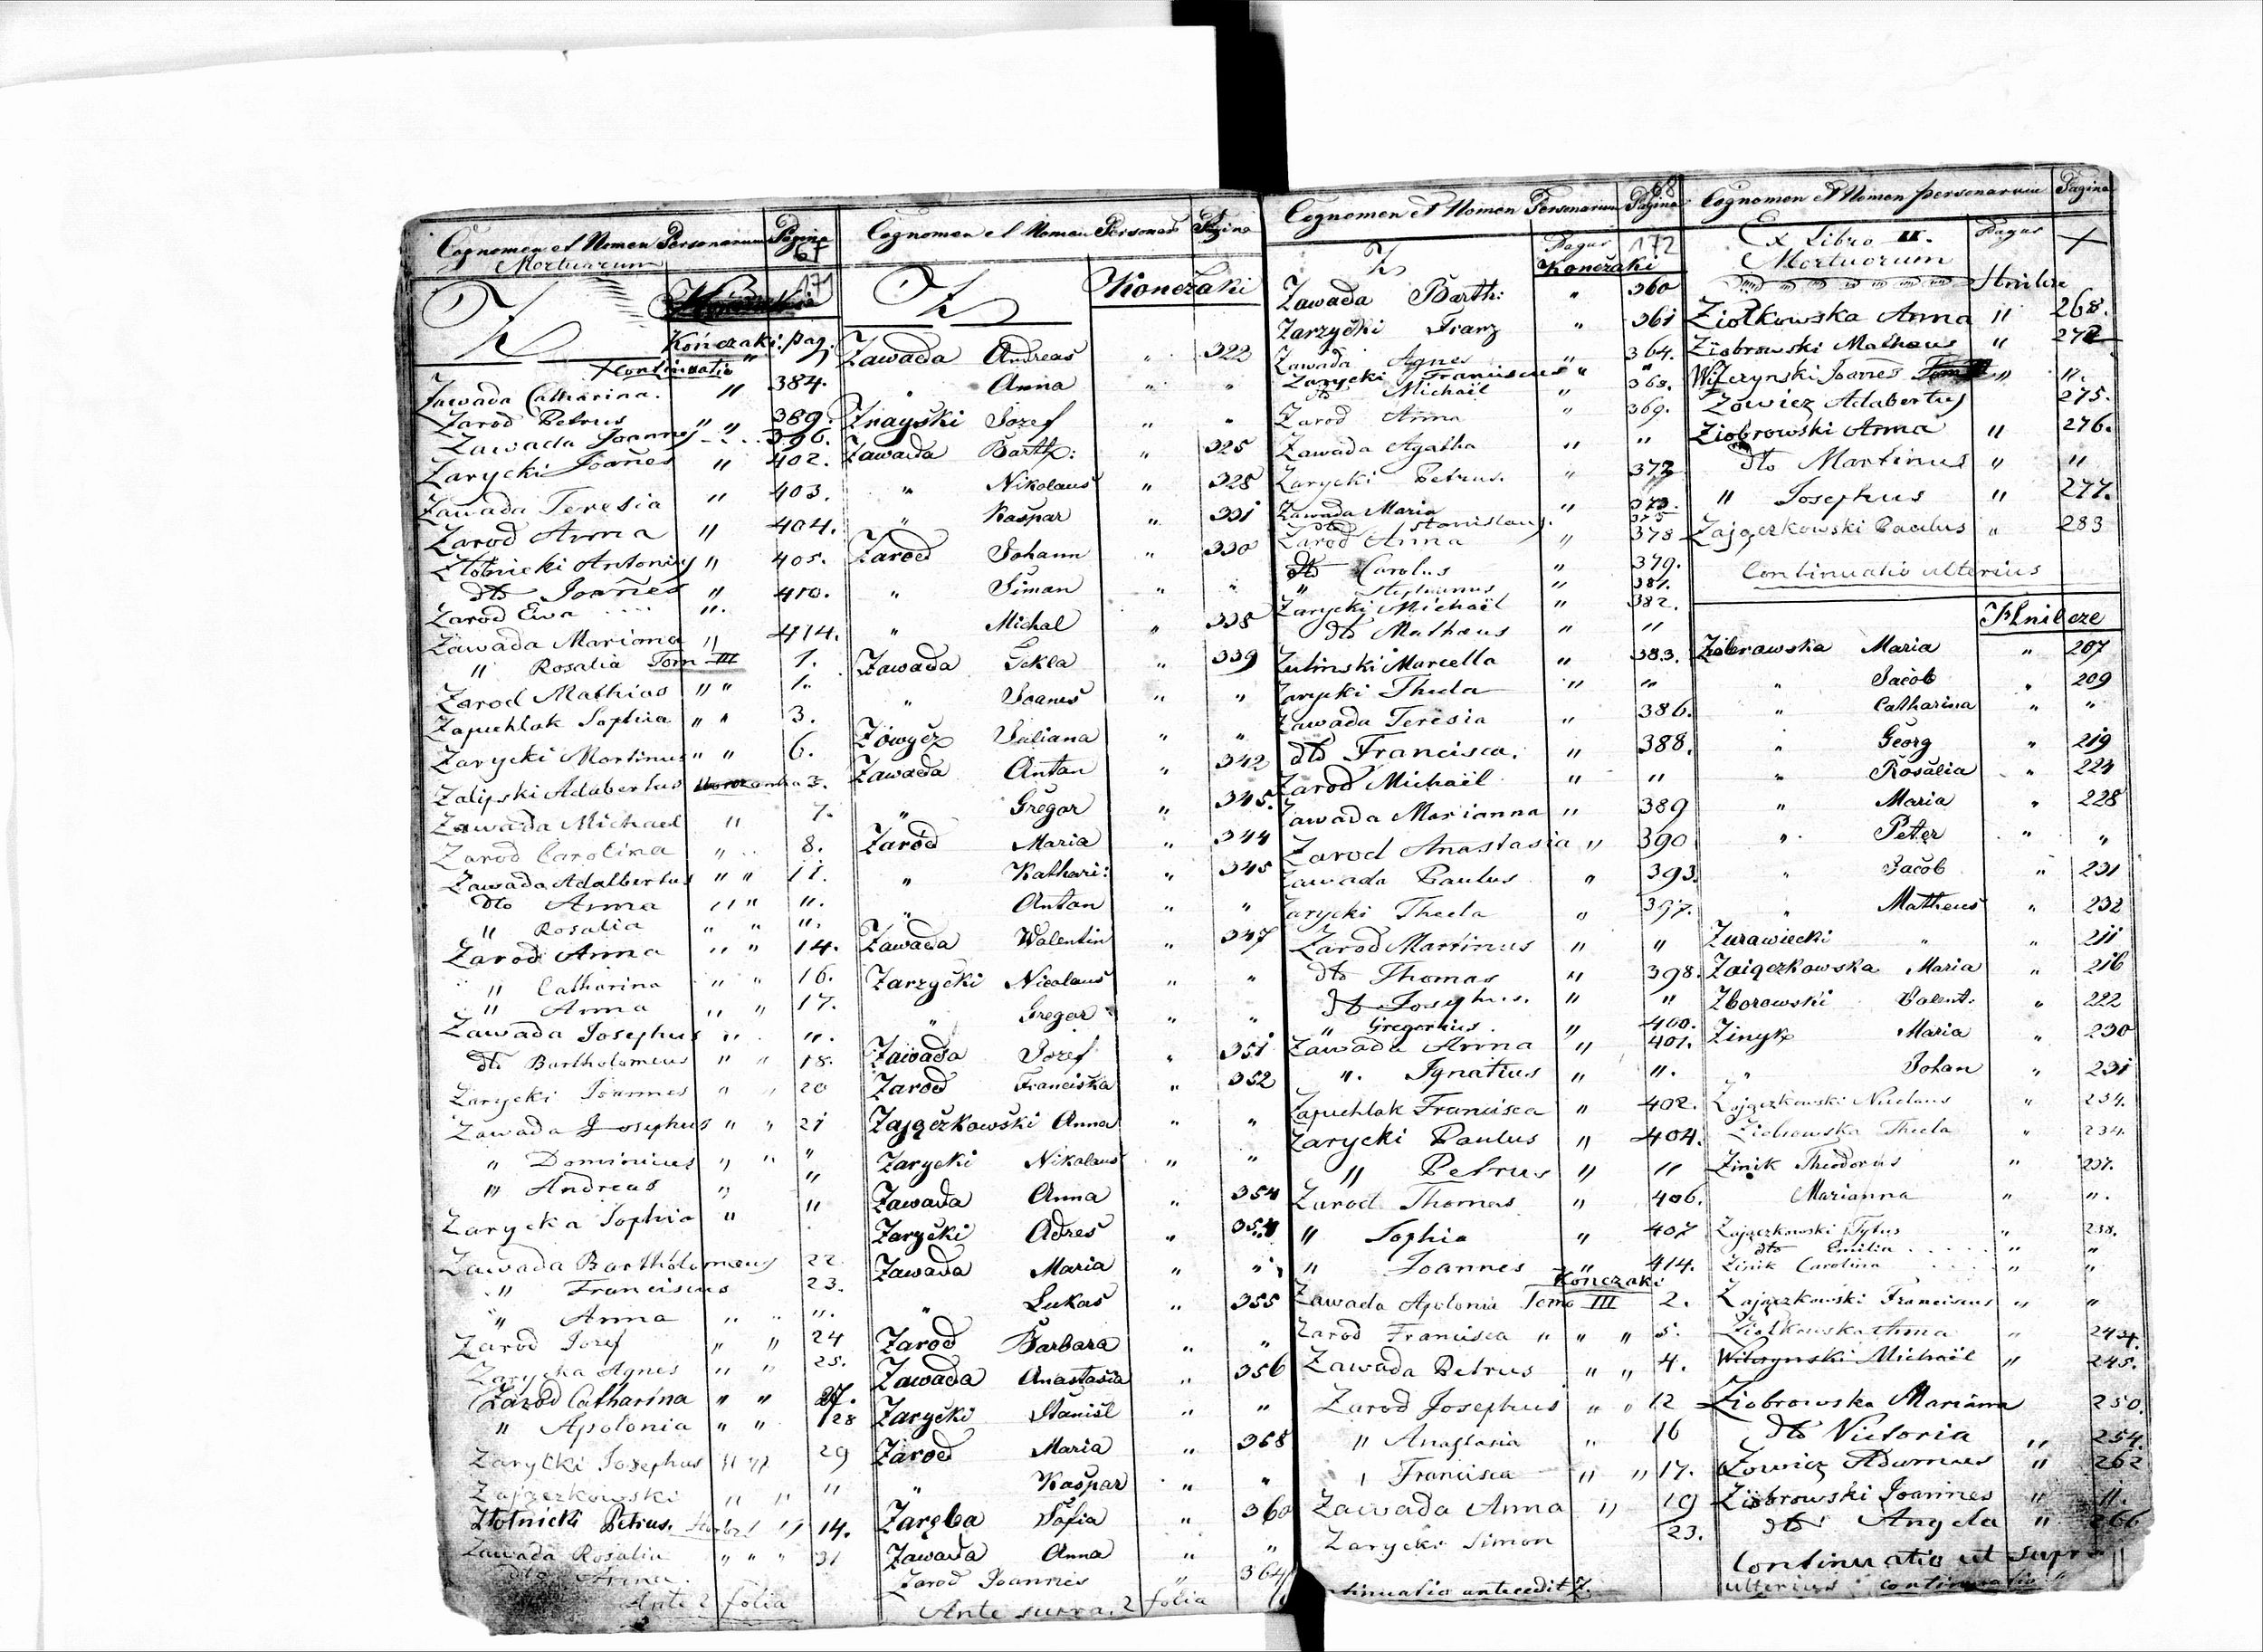 Cognomen et Nomen Personarum Pagina
Mortuorum 67
Z 171
Kończaki pag.
Continuatio
Zawada Catharina. " 384.
Zarod Petrus " " 389.
Zawada Joannes 396.
Zarycki Joañes " 402.
Zawada Teresia " 403.
Zarod Anna " 404.
Złotnicki Antonius " 405.
dto Joañes " 410.
Zarod Ewa " .
Zawada Marianna " 414.
" Rosalia Tom III 1.
Zarod Mathias " " 1.
Zapuchlak Sophia " " 3.
Zarycki Martinus " " 6.
Zalipski Adalbertus 3.
Zawada Michael " 7.
Zarod Carolina " 8.
Zawada Adalbertus " " 11.
dto Anna " " ".
" Rosalia " " ".
Zarod Anna " " 14.
" Catharina " " 16.
" Anna " " 17.
Zawada Josephus " ".
dto Bartholomeus " " 18.
Zarycki Joannes " " 20
Zawada Josephus " " 21
" Dominicus " " "
" Andreas " "
Zarycka Sophia " "
Zawada Bartholomeus 22
" Franciscus 23.
" Anna " " ".
Zarod Jozef " " 24
Zarycka Agnes " " 25.
Zarod Catharina " " 27.
" Apolonia " " 28
Zarycki Josephus " " 29
Zajączkowski " " "
Złotnicki Petrus. " 14.
Zawada Rosalia " " " 31
dto Anna.
Ante 2 folia
Cognomen et Nomen Personar Pagina
Z Konczaki
Zawada Andreas " 322
" Anna " "
Znayski Jozef " "
Zawada Barth: " 325
" Nikolaus " 328
" Kaspar " 331
Zarod Johann " 330
" Siman " "
" Michal " 338
Zawada Tekla " 339
" Joanes " "
Zowycz Juliana " "
Zawada Antan " 342
" Gregor " 345.
Zarod Maria " 344
" Kathari: " 345
" Antan " "
Zawada Walentin " 347
Zarzycki Nicolaus " "
" Gregor " "
Zawada Jozef " 351
Zarod Franciska " 352
Zajączkowski Anna " "
Zarycki Nikolaus " "
Zawada Anna " 354
Zarycki Adres " 354
Zawada Maria " "
" Lukas " 355
Zarod Barbara " "
Zawada Anastasia " 356
Zarycki Stanisl " "
Zarod Maria " 358
" Kaspar " "
Zaręba Sofia " 360
Zawada Anna " "
Zarod Joannes " 364
Ante supra. 2 folia
Cognomen et Nomen Personarum Pagina
68
Z Pagus 172
Konczaki
Zawada Barth: " 360
Zarzycki Franz " 361
Zawada Agnes " 364.
Zarycki Franciscus " "
dto Michaël " 368.
Zarod Anna " 369.
Zawada Agatha " "
Zarycki Petrus. " 372
Zawada Maria " 373.
dto Stanislaus. 375
Zarod Anna " 378
dto Carolus " 379.
" Stephanus " 381.
Zarycki Michaël " 382.
dto Matheus " "
Zulinski Marcella " 383.
Zarycki Thecla " "
Zawada Teresia " 386.
dto Francisca. " 388.
Zarod Michaël " "
Zawada Marianna " 389
Zarod Anastasia " 390
Zawada Paulus " 393.
Zarycki Thecla " 397.
Zarod Martinus " "
dto Thomas " 398.
dto Josephus. " "
" Gregorius. " 400.
Zawada Anna " 401.
" Ignatius " ".
Zapuchlak Francisca " 402.
Zarycki Paulus " 404.
" Petrus " "
Zarod Thomas " 406.
" Sophia " 407
" Joannes " 414.
Konczaki
Zawada Apolonia Tomo III 2.
Zarod Francisca " " " 5.
Zawada Petrus " " 4.
Zarod Josephus " " 12
" Anastasia " 16
" Francisca " " 17.
Zawada Anna " 19
Zarycki Simon 23.
antecedit Z.
Cognomen et Nomen personarum Pagina
Ex Libro II. Pagus
Mortuorum
Hnilcze
Ziołkowska Anna " 268.
Ziobrowski Matheus " 272
Wilczynski Joannes " ".
Zowicz Adabertus 275.
Ziobrowski Anna " 276.
dto Martinus " "
" Josephus " 277.
Zajączkowski Paulus " 283
Continuatio ulterius
Hnilcze
Ziobrawska Maria " 207
" Jacob " 209
" Catharina " "
" Georg " 219
" Rosalia " 224
" Maria " 228
" Peter " "
" Jacob " 231
" Matheus " 232
Zurawiecki " " 211
Zaiączkowska Maria " 216
Zborowski Valent. " 222
Zinyk Maria " 230
" Johan " 231
Zajączkowski Nicolaus " 234.
Ziobrowska Thecla " 234.
Zinik Theodorus " 237.
Marianna " ".
Zajączkowski Tytus " 238.
dto Emilia " "
Zinik Carolina " "
Zajączkowski Franciscus " "
Ziołkowska Anna " 244.
Wilczynski Michaël " 245.
Ziobrowska Mariana 250.
dto Victoria " 254.
Zowicz Adamus " 262
Ziobrowski Joannes " ".
dto Angela " 266
Continuatio ut supra
ulterius continuatio